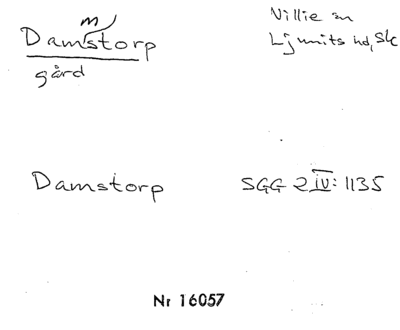 m
Damstorp
gård
Villie sn
Ljunits hd, Sk
Damstorp
SGG 2 IV: 1135
Nr 16057